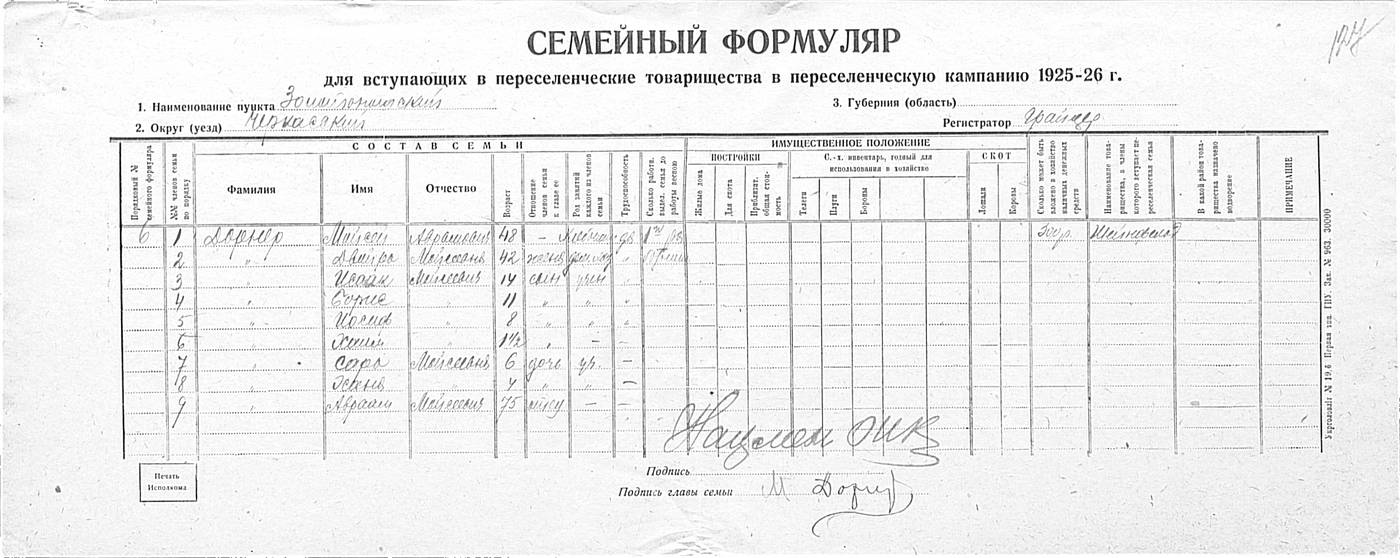 СЕМЕЙНЫЙ ФОРМУЛЯР
для вступающих в переселенческие товарищества в переселенческую кампанию 1925-26 г.
1. Наименование пункта
3. Губерния (область)
2. Округ (уезд) Черкасский
Регистратор
СОСТАВ СЕМЬИ
ИМУЩЕСТВЕННОЕ ПОЛОЖЕНИЕ
Порядковый № семейного формуляра
№№ членов семьи по порядку
Фамилия
Имя
Отчество
Возраст
Отношение членов семьи к главе ее
Род занятий каждого из членов семьи
Трудоспособность
Сколько работн. выдел. семья до работы весною
ПОСТРОЙКИ
Жилые дома
Для скота
Приблизит. общая стоимость
С.-х. инвентарь, годный для использования в хозяйстве
Телеги
Плуги
Бороны
СКОТ
Лошади
Коровы
Сколько может быть вложено в хозяйство наличных денежных средств
Наименование товарищества, в члены которого вступает переселенческая семья
В какой район товарищества назначено водворение
ПРИМЕЧАНИЕ
6 1 Дорнер Мойсей Аврамович 48 –
2 " Двейра Мойсеевна 42 жена "
3 " Исаак Мойсеевич 14 сын "
4 " Борис " 11 " " "
5 " Иосиф " 8 " " "
6 " " 1½ " –
7 " Сара Мойсеевна 6 дочь –
8 " " 4 " " –
9 " Авраам Мойсеевич 75 отец – –
300 р.
Нацмен ОИК
Печать Исполкома
Подпись
Подпись главы семьи М Дорнер
Укрголовліт № 19.6 Первая тип. ГПУ Зак. № 963. 30000